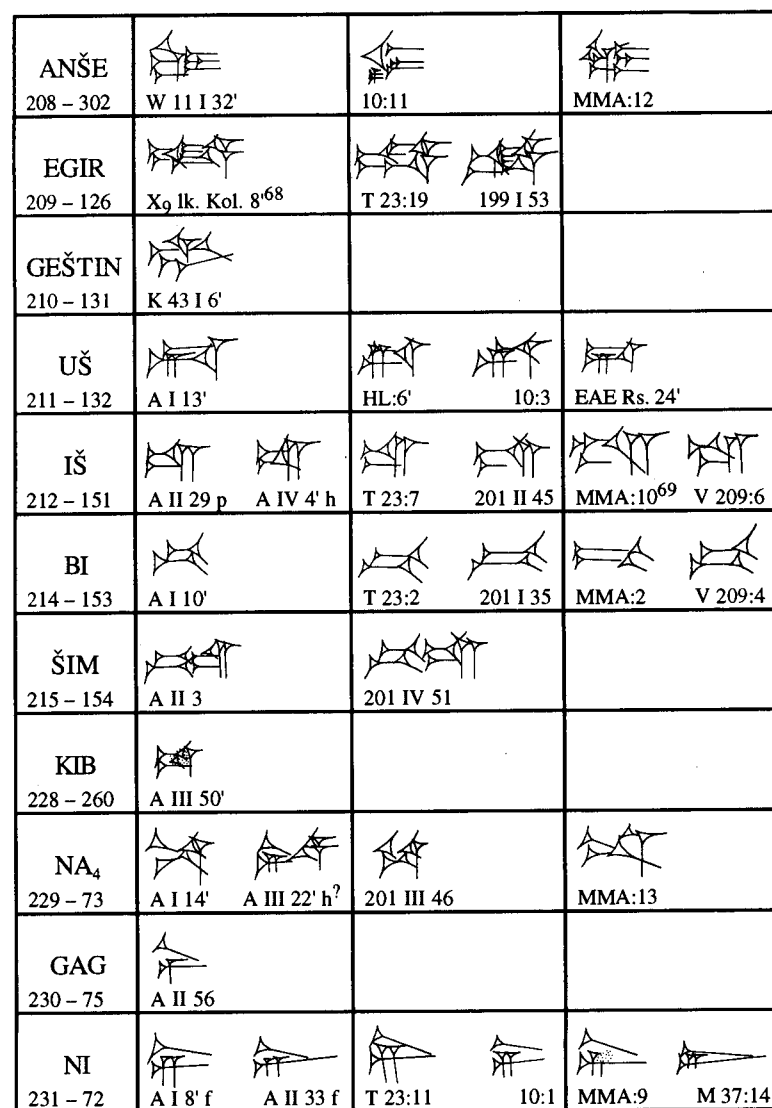 ANŠE
208 – 302
W 11 I 32'
10:11
MMA:12
EGIR
209 – 126
X₉ lk. Kol. 8'⁶⁸
T 23:19
199 I 53
GEŠTIN
210 – 131
K 43 I 6'
UŠ
211 – 132
A I 13'
HL:6'
10:3
EAE Rs. 24'
IŠ
212 – 151
A II 29 p
A IV 4' h
T 23:7
201 II 45
MMA:10⁶⁹
V 209:6
BI
214 – 153
A I 10'
T 23:2
201 I 35
MMA:2
V 209:4
ŠIM
215 – 154
A II 3
201 IV 51
KIB
228 – 260
A III 50'
NA₄
229 – 73
A I 14'
A III 22' h?
201 III 46
MMA:13
GAG
230 – 75
A II 56
NI
231 – 72
A I 8' f
A II 33 f
T 23:11
10:1
MMA:9
M 37:14